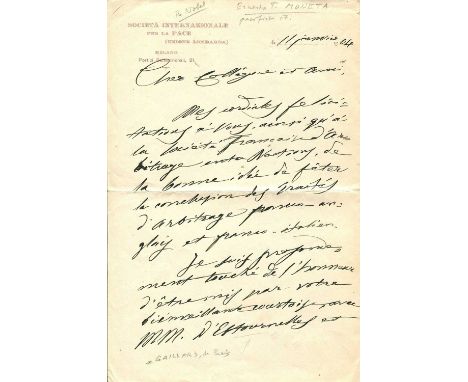 Px Nobel
Ernesto T. MONETA
SOCIETÀ INTERNAZIONALE
PER LA PACE
(UNIONE LOMBARDA)
MILANO
Portici Settentrionali, 21
le 11 janvier 04
Cher Collègue et Ami,
Mes cordiales félici-
tations à Vous, ainsi qu'à
la Société française d'Ar
bitrage entre Nations, de
la bonne idée de fêter
la conclusion des traités
d'Arbitrage franco-an-
glais et franco-italien.
Je suis profondé
ment touché de l'honneur
d'être mis par votre
bienveillante courtoisie avec
MM. D'Estournelles et
GAILLARD, de Paris